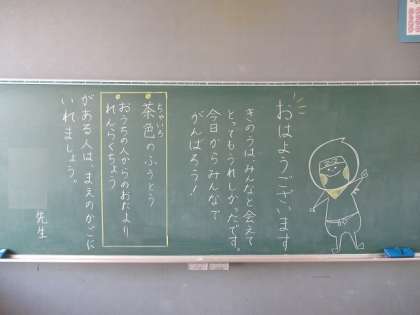 おはようございます
きのうは、みんなと会えて
とってもうれしかったです。
今日からみんなで
がんばろう！
ちゃいろ
茶色のふうとう
おうちの人からのおたより
れんらくちょう
がある人は、まえのかごに
いれましょう。
先生